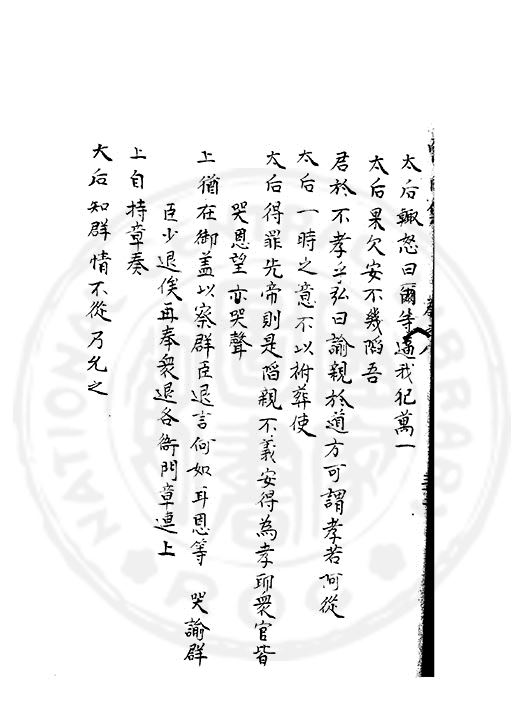 太后輙怒曰爾等逼我犯萬一
太后果欠安不幾陷吾
君於不孝立弘曰諭親於道方可謂孝若阿從
太后一時之意不以祔葬使
太后得罪先帝則是陷親不義安得為孝耶衆官皆
哭恩望亦哭聲
上猶在御盖以察群臣退言何如耳恩等 哭諭群
臣少退俟再奉衆退各衙門章連上
上自持章奏
大后知群情不從乃允之